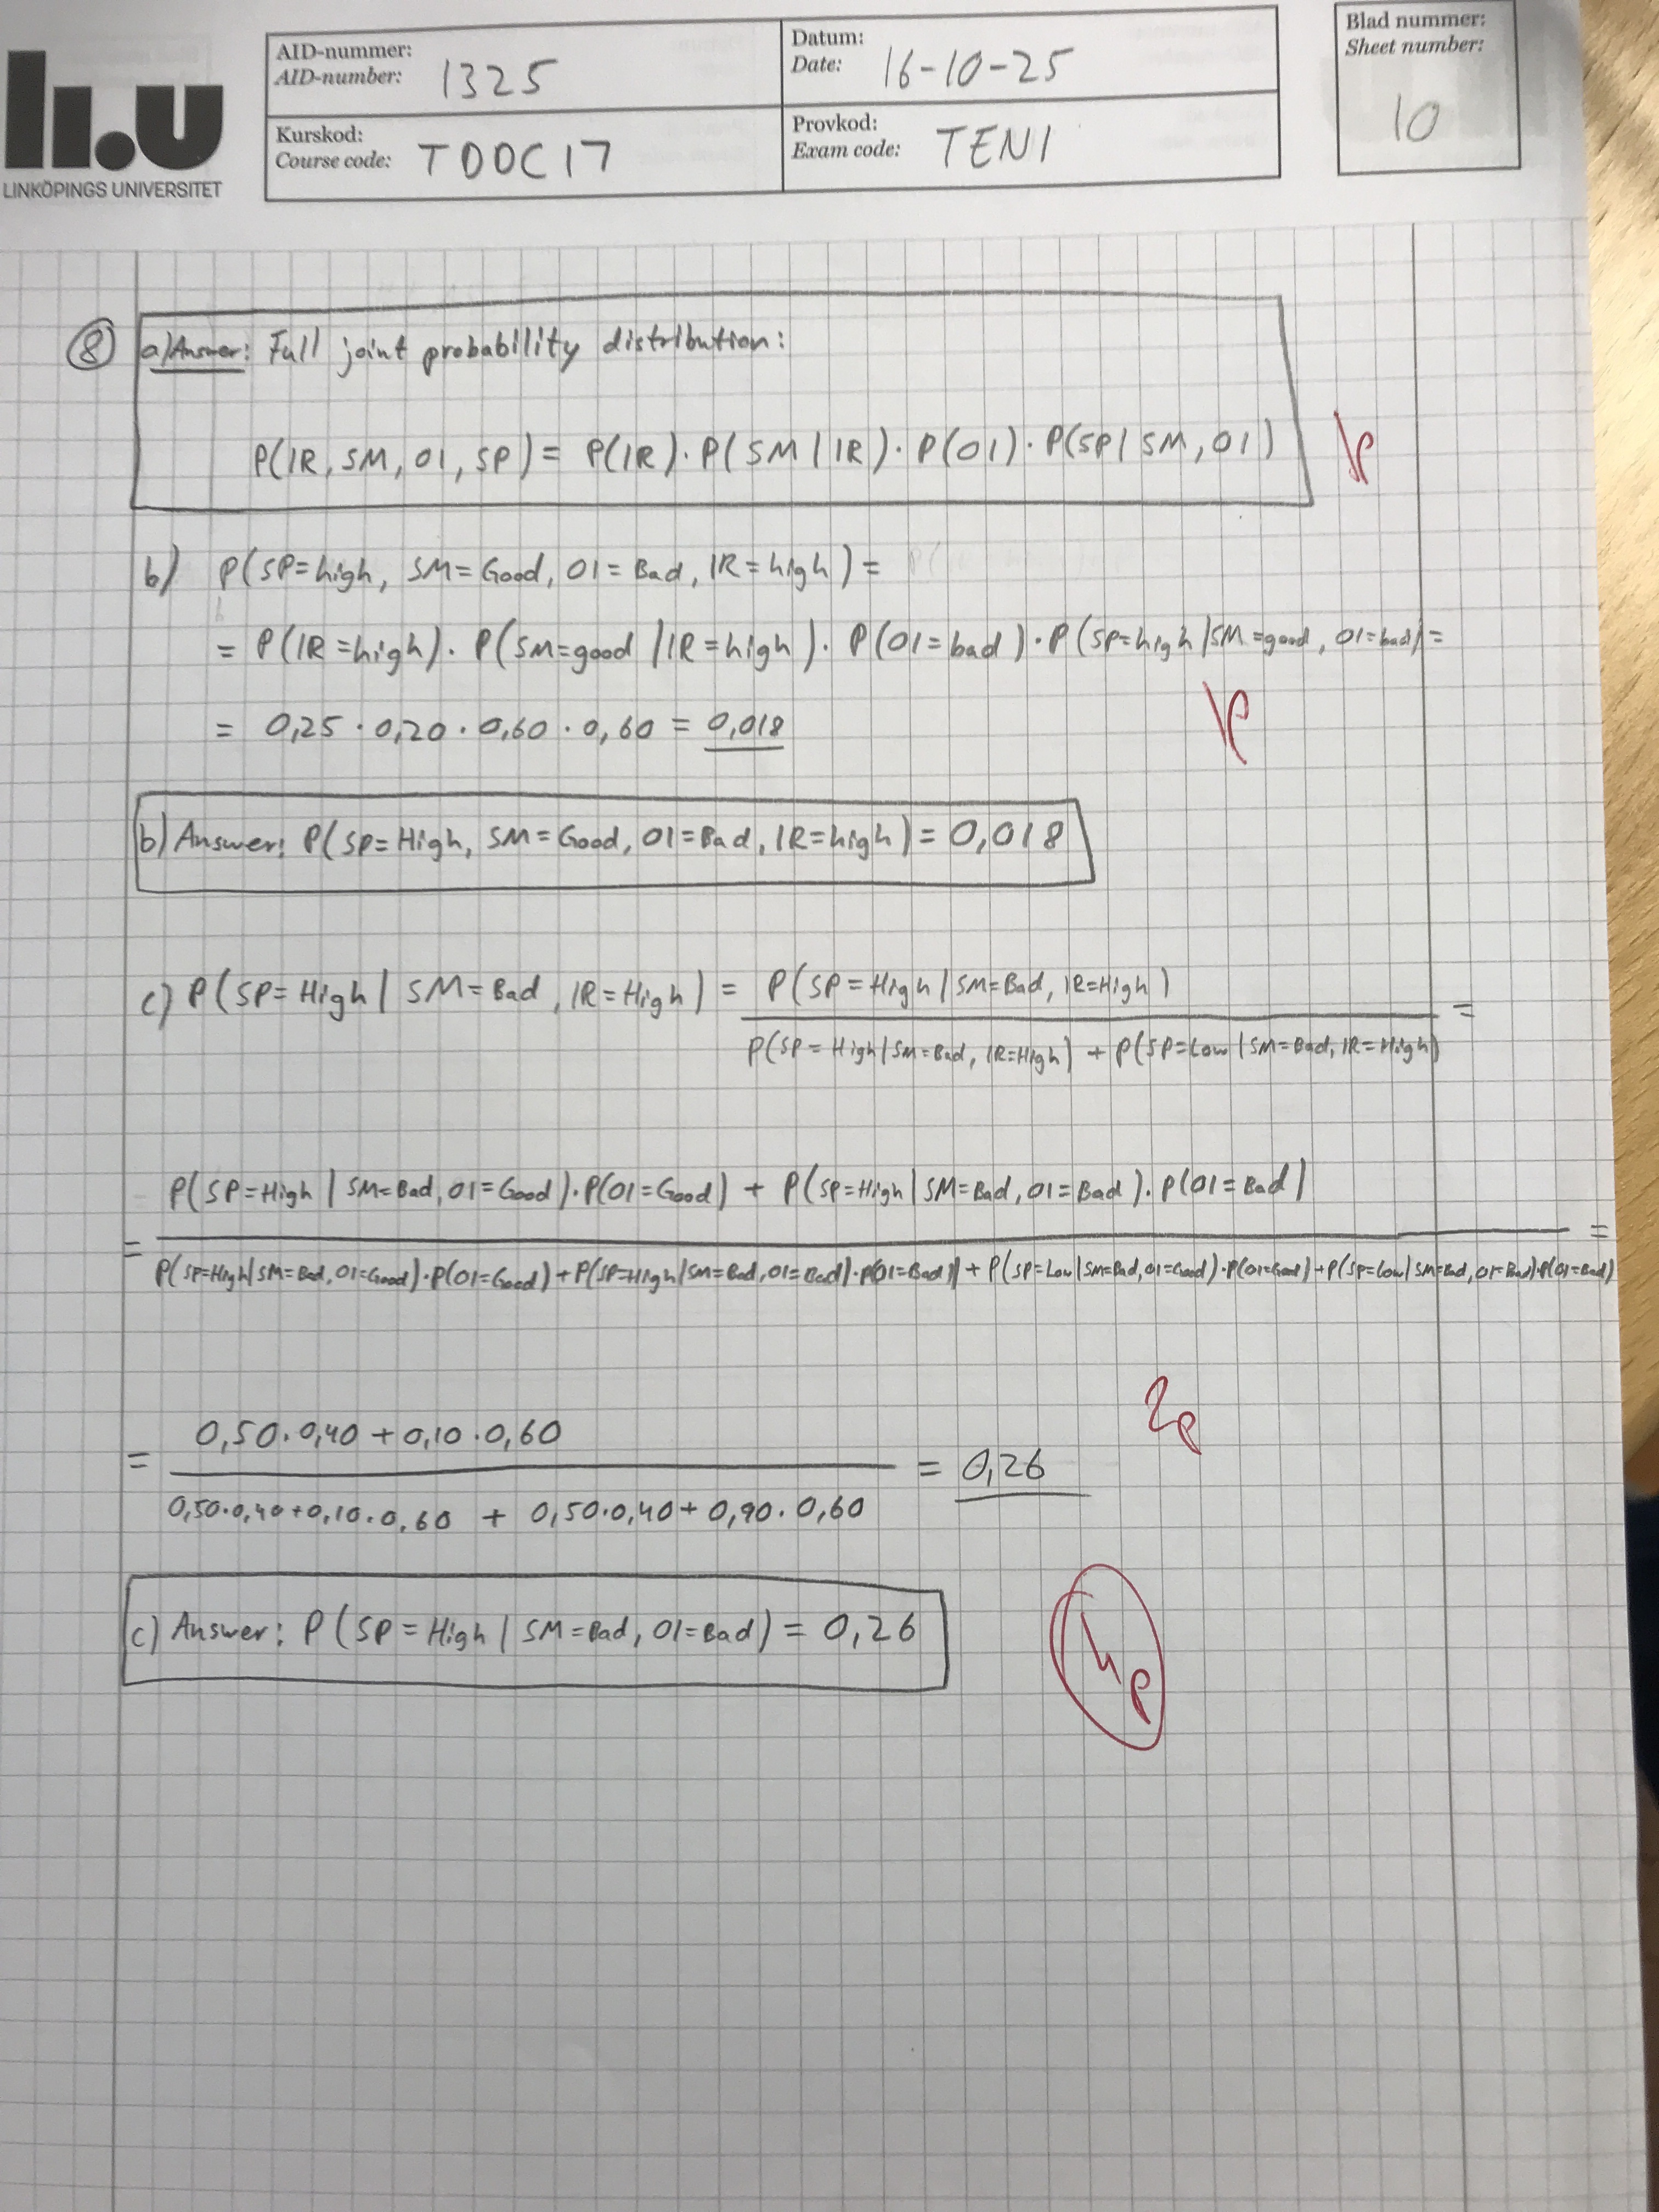 li.u
LINKÖPINGS UNIVERSITET
AID-nummer:
AID-number: 1325
Datum:
Date: 16-10-25
Blad nummer:
Sheet number:
10
Kurskod:
Course code: TDDC17
Provkod:
Exam code: TEN1
8 a) Answer: Full joint probability distribution:
P(IR, SM, OI, SP) = P(IR) · P(SM | IR) · P(OI) · P(SP | SM, OI)
1p
b) P(SP=high, SM=Good, OI=Bad, IR=high) =
= P(IR=high) · P(SM=good | IR=high) · P(OI=bad) · P(SP=high | SM=good, OI=bad) =
= 0,25 · 0,20 · 0,60 · 0,60 = 0,018
1p
b) Answer: P(SP=High, SM=Good, OI=Bad, IR=high) = 0,018
c) P(SP=High | SM=Bad, IR=High) = P(SP=High | SM=Bad, IR=High)
P(SP=High | SM=Bad, IR=High) + P(SP=Low | SM=Bad, IR=High) =
P(SP=High | SM=Bad, OI=Good) · P(OI=Good) + P(SP=High | SM=Bad, OI=Bad) · P(OI=Bad)
= P(SP=High | SM=Bad, OI=Good) · P(OI=Good) + P(SP=High | SM=Bad, OI=Bad) · P(OI=Bad) + P(SP=Low | SM=Bad, OI=Good) · P(OI=Good) + P(SP=Low | SM=Bad, OI=Bad) · P(OI=Bad) =
2p
0,50 · 0,40 + 0,10 · 0,60
= 0,50 · 0,40 + 0,10 · 0,60 + 0,50 · 0,40 + 0,90 · 0,60 = 0,26
c) Answer: P(SP=High | SM=Bad, OI=Bad) = 0,26
4p